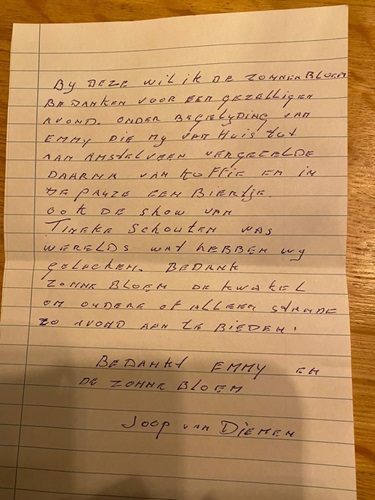 By deze wil ik de Zonnenbloem
bedanken voor een gezelligen
avond. onder begelyding van
Emmy die my van Huis tot
aan Amstelveen vergeselde
daarna van koffie en in
de pauze een Biertje.
ook de show van
Tineke Schouten was
werelds wat hebben wy
gelachen. Bedank
Zonne Bloem de Kwakel
om oudere of alleen staande
zo avond aan te bieden!
Bedankt Emmy en
de Zonne Bloem
Joop van Diemen